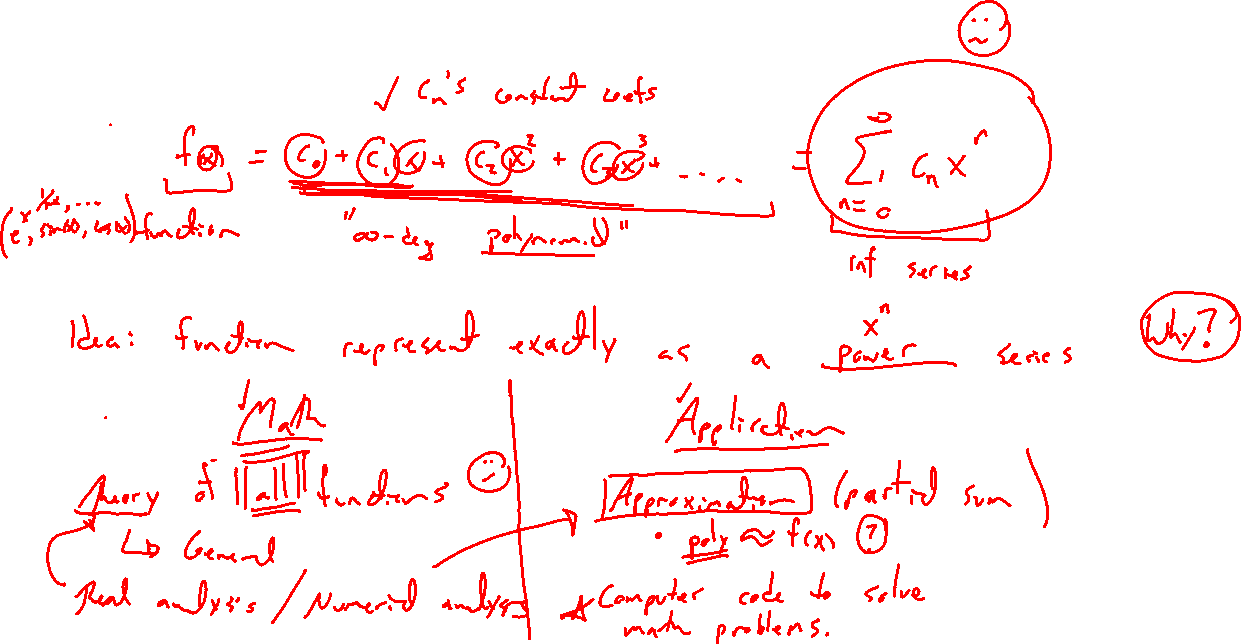 ✓ Cn's constant coefs
f(x) = C₀ + C₁x + C₂x² + C₃x³ + ..... = ∑ n=0 ∞ Cn xⁿ
(eˣ, 1/x, ... sin(x), cos(x)) function
"∞-deg polynomial"
inf series
Idea: function represent exactly as a power series
xⁿ
Why?
✓ Math
Theory of all functions
↳ General
Real analysis / Numerical analysis
✓ Application
Approximation (partial sum)
• poly ≈ f(x) ?
★ Computer code to solve
math problems.